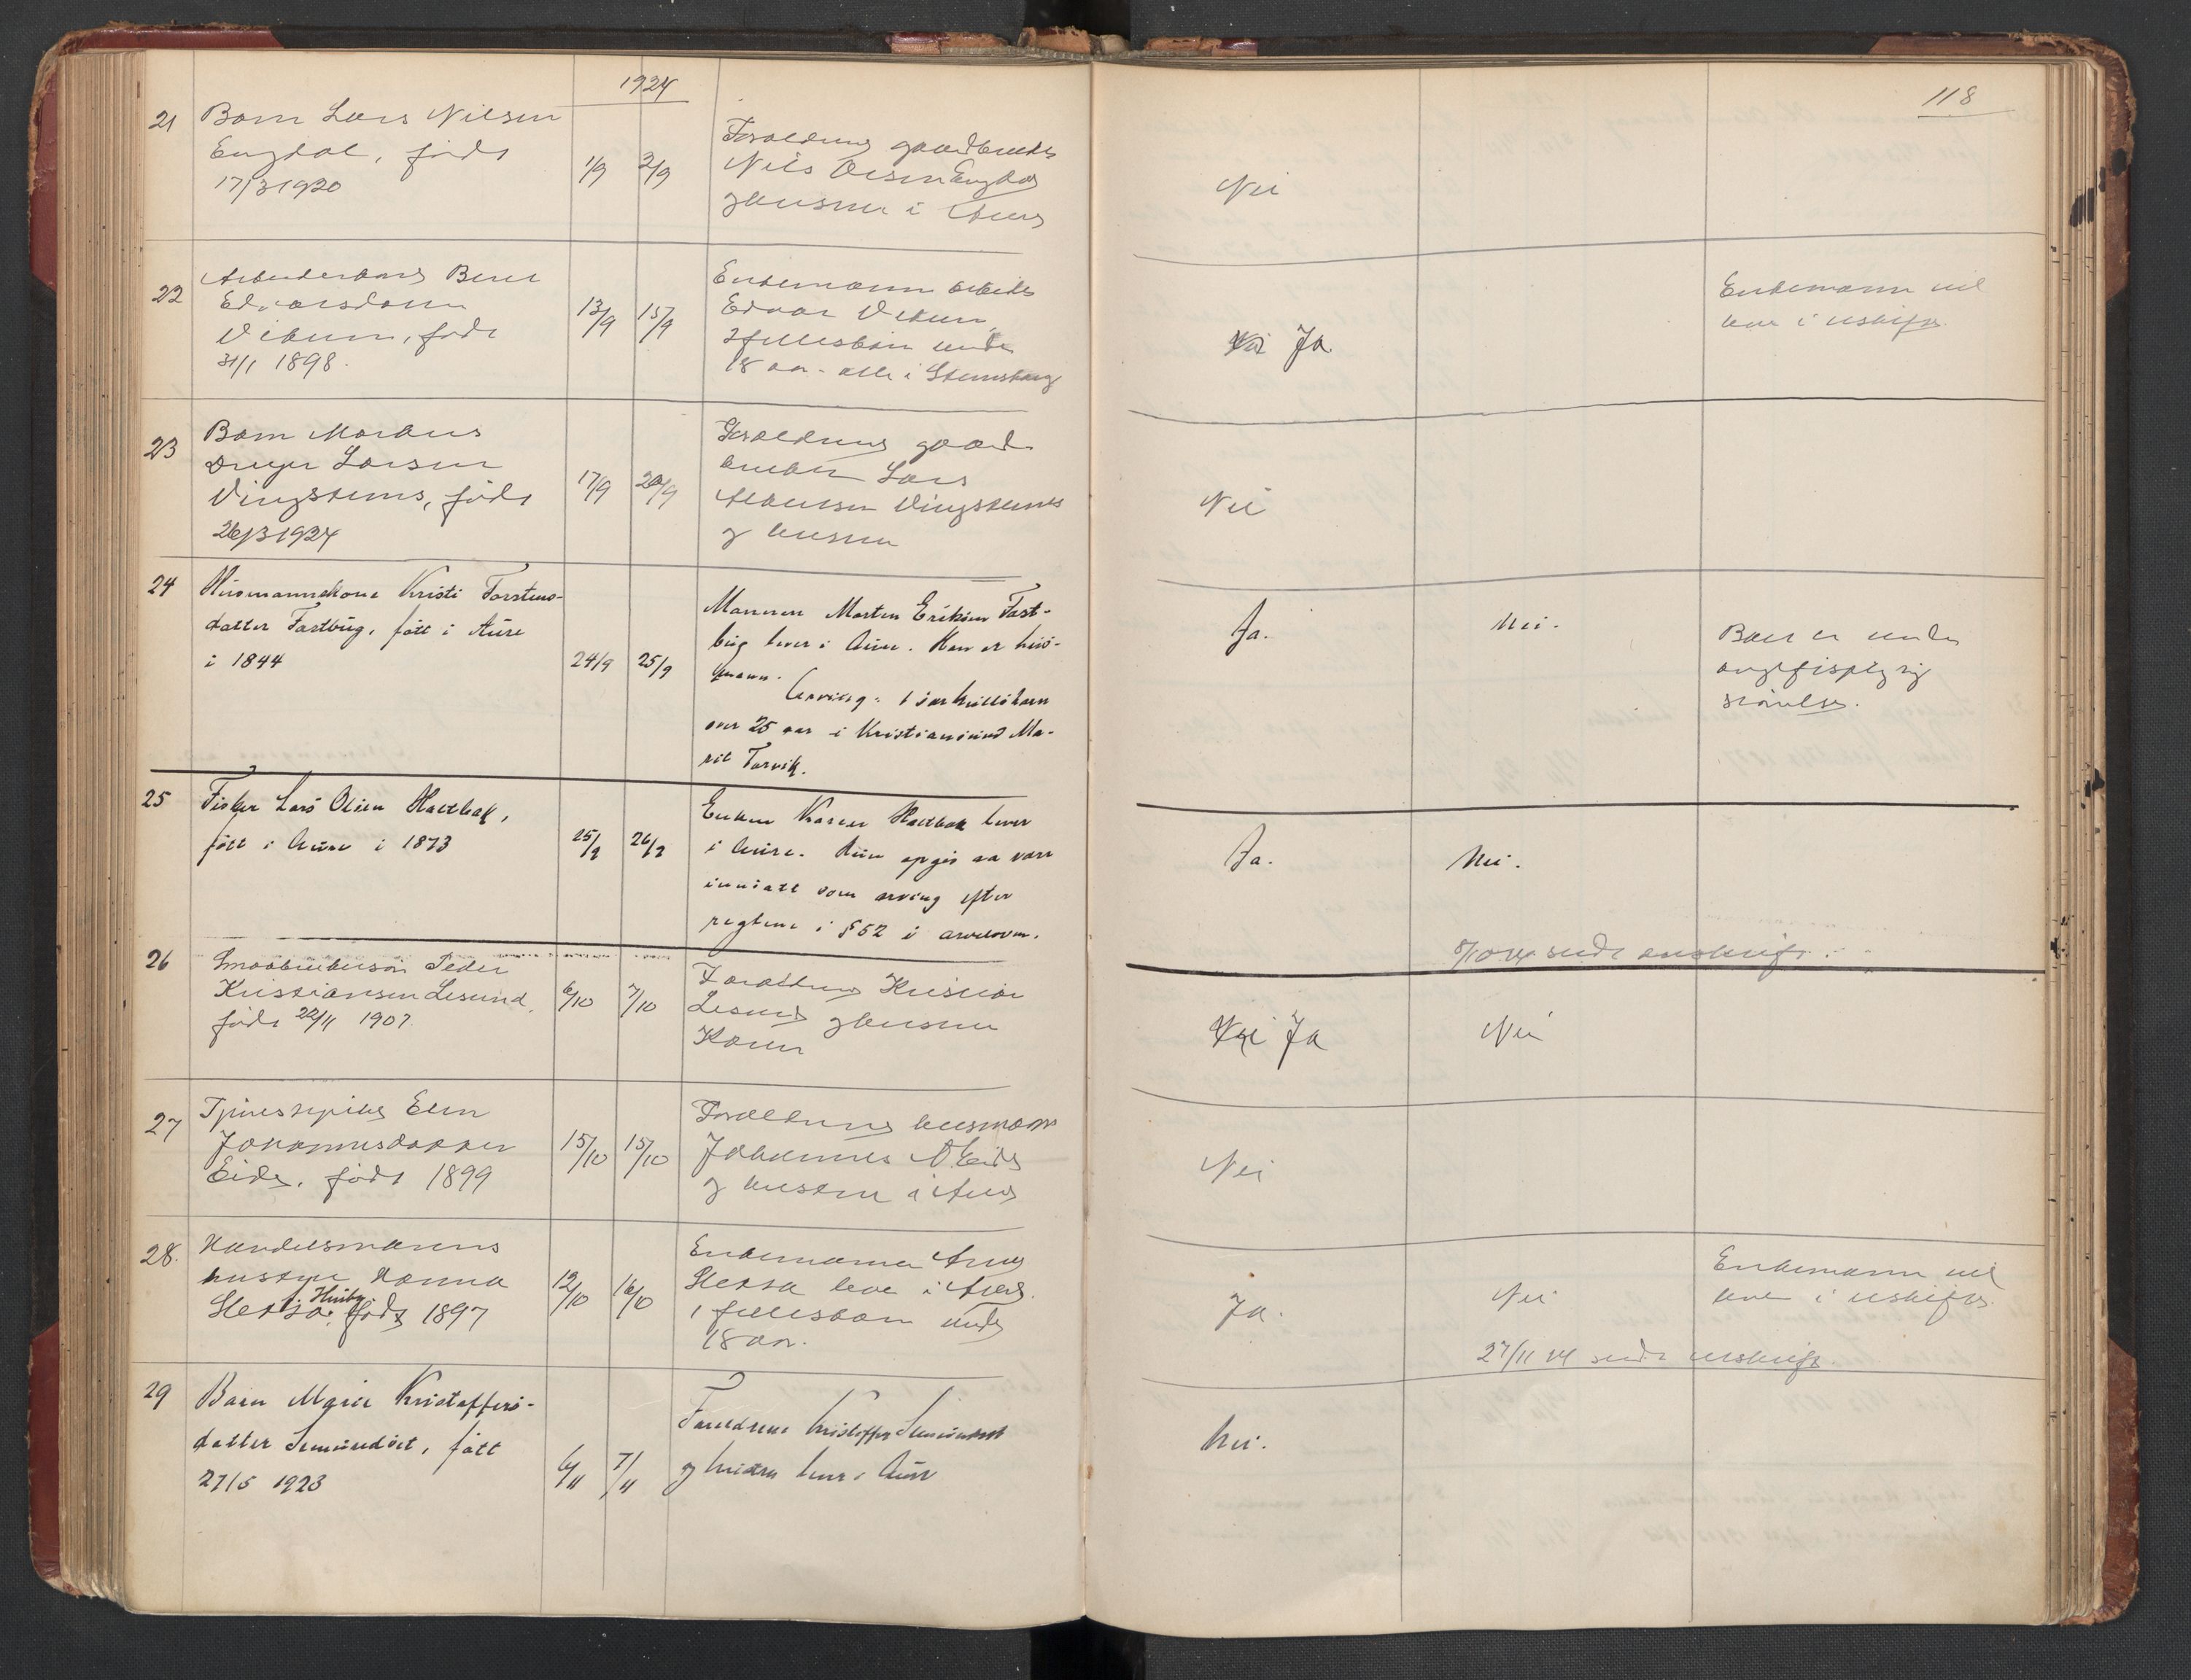 1924
118
21
Barn Lars Nilsen
Engdal, född
17/3 1920
1/9
2/9
Foraldrene gaardbruker
Nils Olsen Engdal
og hustru i Aure
Nei
22
Arbeiderkone Beret
Edvarsdatter
Vikum, född
31/1 1898.
13/9
15/9
Enkemann arbeider
Edvar Vikum,
3 fellesbarn under
18 aar - alle i Stemshaug
Nei Ja
Enkemann vil
leve i uskifte.
23
Barn Markus
Dreyer Larsen
Vingstenes, född
26/3 1924
17/9
20/9
Foraldrene gaard
bruker Lars
Vingstenes
og hustru
Nei
24
Husmannskone Kristi Torstens-
datter Tastbug, fött i Aure
i 1844
24/9
25/9
Mannen Morten Eriksen Tast-
bug lever i Aure. Han er hus-
mann.
Arving: 1 særkullsbarn
over 25 aar i Kristiansund Ma-
rit Torvik.
Ja.
Nei.
Boet er under
skiftelse.
25
Fisker Lars Olsen Haltbak,
fött i Aure i 1873
25/9
26/9
Enken Karen Haltbak lever
i Aure. Hun opgis aa være
innsatt som arving efter
reglene i § 52 i arveloven.
Ja.
Nei.
8/10 24 sendt utskrift.
26
Smaabrukersön Peder
Kristiansen Lesund,
född 22/11 1907.
6/10
7/10
Foraldrene Kristian
Lesund og hustru
Karen
Nei Ja
Nei
27
Tjenestepike Elen
Johannesdatter
Eide, född 1899
15/10
15/10
Foraldrene husmann
Johannes A. Eide
og hustru i Aure
Nei
28.
Handelsmanns
hustru Hanna
f. Husby
Sletta, född 1897
12/10
16/10
Enkemannen Arne
Sletta lever i Aure.
1 fellesbarn under
18 aar.
Ja.
Nei
Enkemann vil
leve i uskifte.
27/11 24 sendt utskrift.
29
Barn Marie Kristoffers-
datter Semundset, fött
27/5 1923
6/11
7/11
Foreldrene Kristoffer Semundset
og hustru lever i Aure
Nei.